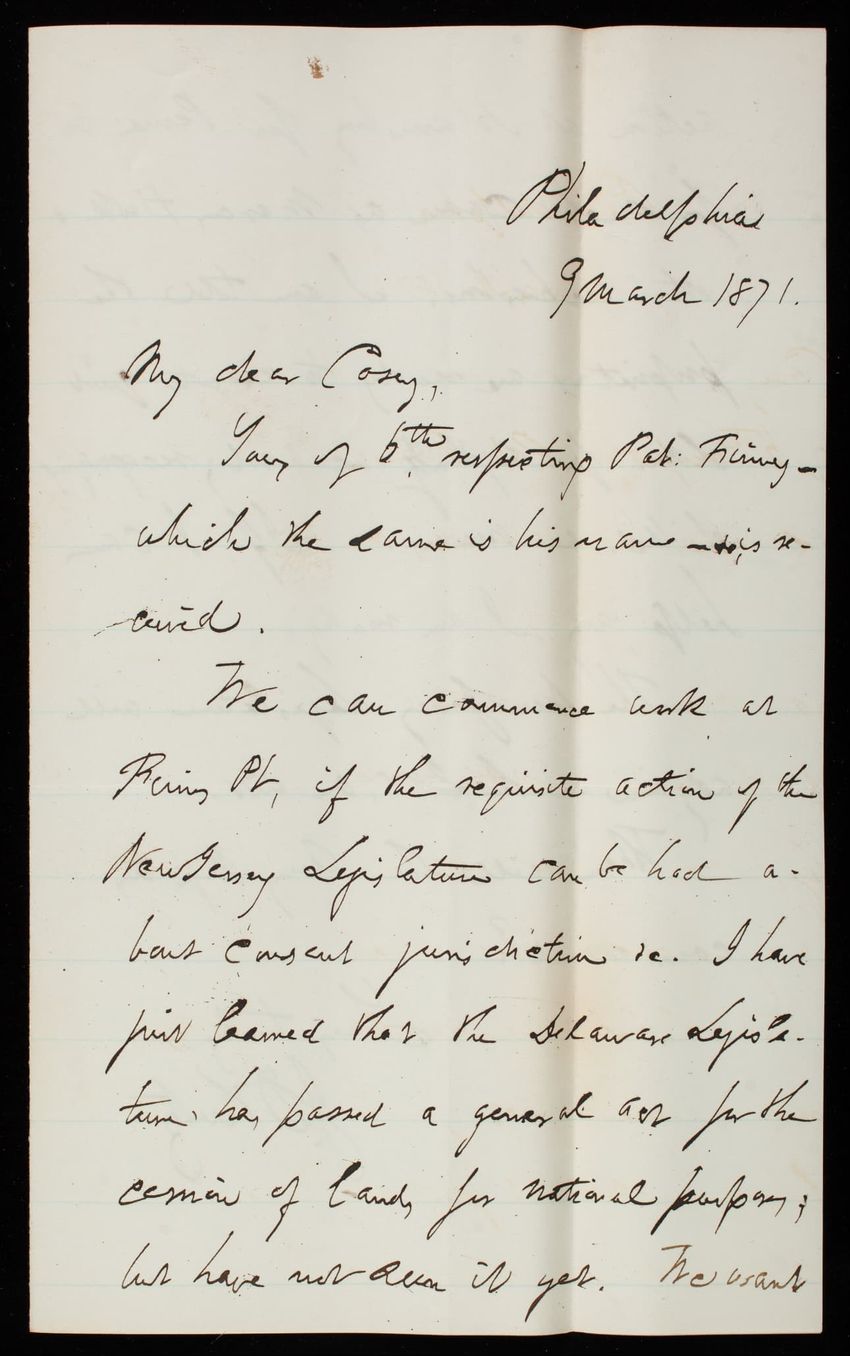 Philadelphia
9 March 1871.
My dear Casey,
Yours of 6th respecting Pat: Finney -
which the same is his name - is re-
ceived.
We can commence work at
Finns Pt, if the requisite action of the
New Jersey Legislature can be had a-
bout consent jurisdiction &c. I have
just learned that the Delaware Legisla-
ture has passed a general act for the
cession of lands for national purposes;
but have not seen it yet. We want